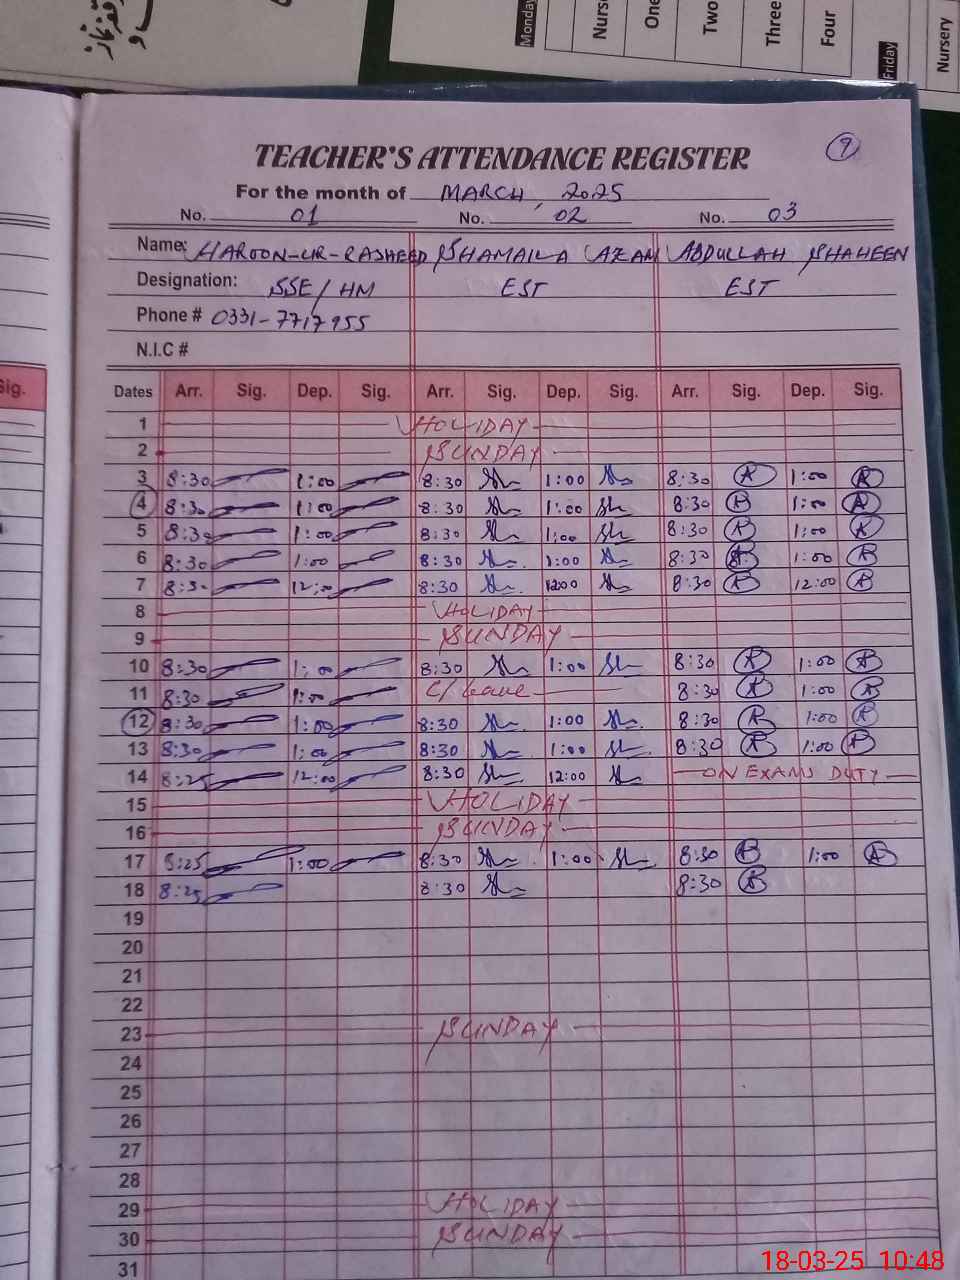 Monday
Nurse
One
Two
Three
Four
Friday
Nursery
TEACHER'S ATTENDANCE REGISTER
9
For the month of MARCH, 2025
No. 01 No. 02 No. 03
Name: HAROON-UR-RASHEED SHAMAILA AZAM ABDULLAH SHAHEEN
Designation: SSE/HM EST EST
Phone # 0331-7717955
N.I.C #
Sig.
Dates Arr. Sig. Dep. Sig. Arr. Sig. Dep. Sig. Arr. Sig. Dep. Sig.
1 HOLIDAY
2 SUNDAY
3 8:30 1:00 8:30 1:00 8:30 1:00
4 8:30 1:00 8:30 1:00 8:30 1:00
5 8:30 1:00 8:30 1:00 8:30 1:00
6 8:30 1:00 8:30 1:00 8:30 1:00
7 8:30 12:00 8:30 1200 8:30 12:00
8 HOLIDAY
9 SUNDAY
10 8:30 1:00 8:30 1:00 8:30 1:00
11 8:30 1:00 C/Leave 8:30 1:00
12 8:30 1:00 8:30 1:00 8:30 1:00
13 8:30 1:00 8:30 1:00 8:30 1:00
14 8:25 12:00 8:30 12:00 ON EXAMS DUTY
15 HOLIDAY
16 SUNDAY
17 8:25 1:00 8:30 1:00 8:30 1:00
18 8:25 8:30 8:30
19
20
21
22
23 SUNDAY
24
25
26
27
28
29 HOLIDAY
30 SUNDAY
31
18-03-25 10:48